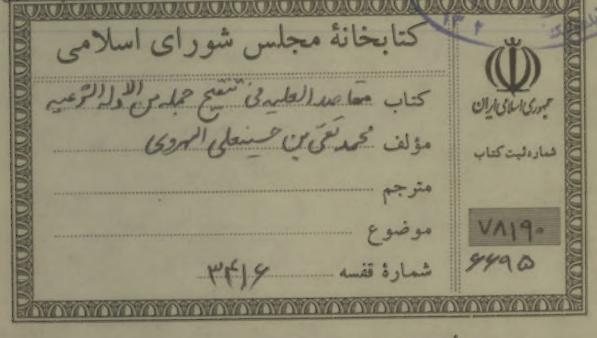 کتابخانهٔ مجلس شورای اسلامی
کتاب مقاصد العلیه فی تنقیح جمله من الادله الشرعیه
مؤلف محمد تقی بن حسینعلی الهروی
مترجم
موضوع
شمارهٔ قفسه ۳۴۱۶
جمهوری اسلامی ایران
شماره ثبت کتاب
۷۸۱۹۰
۶۶۹۵